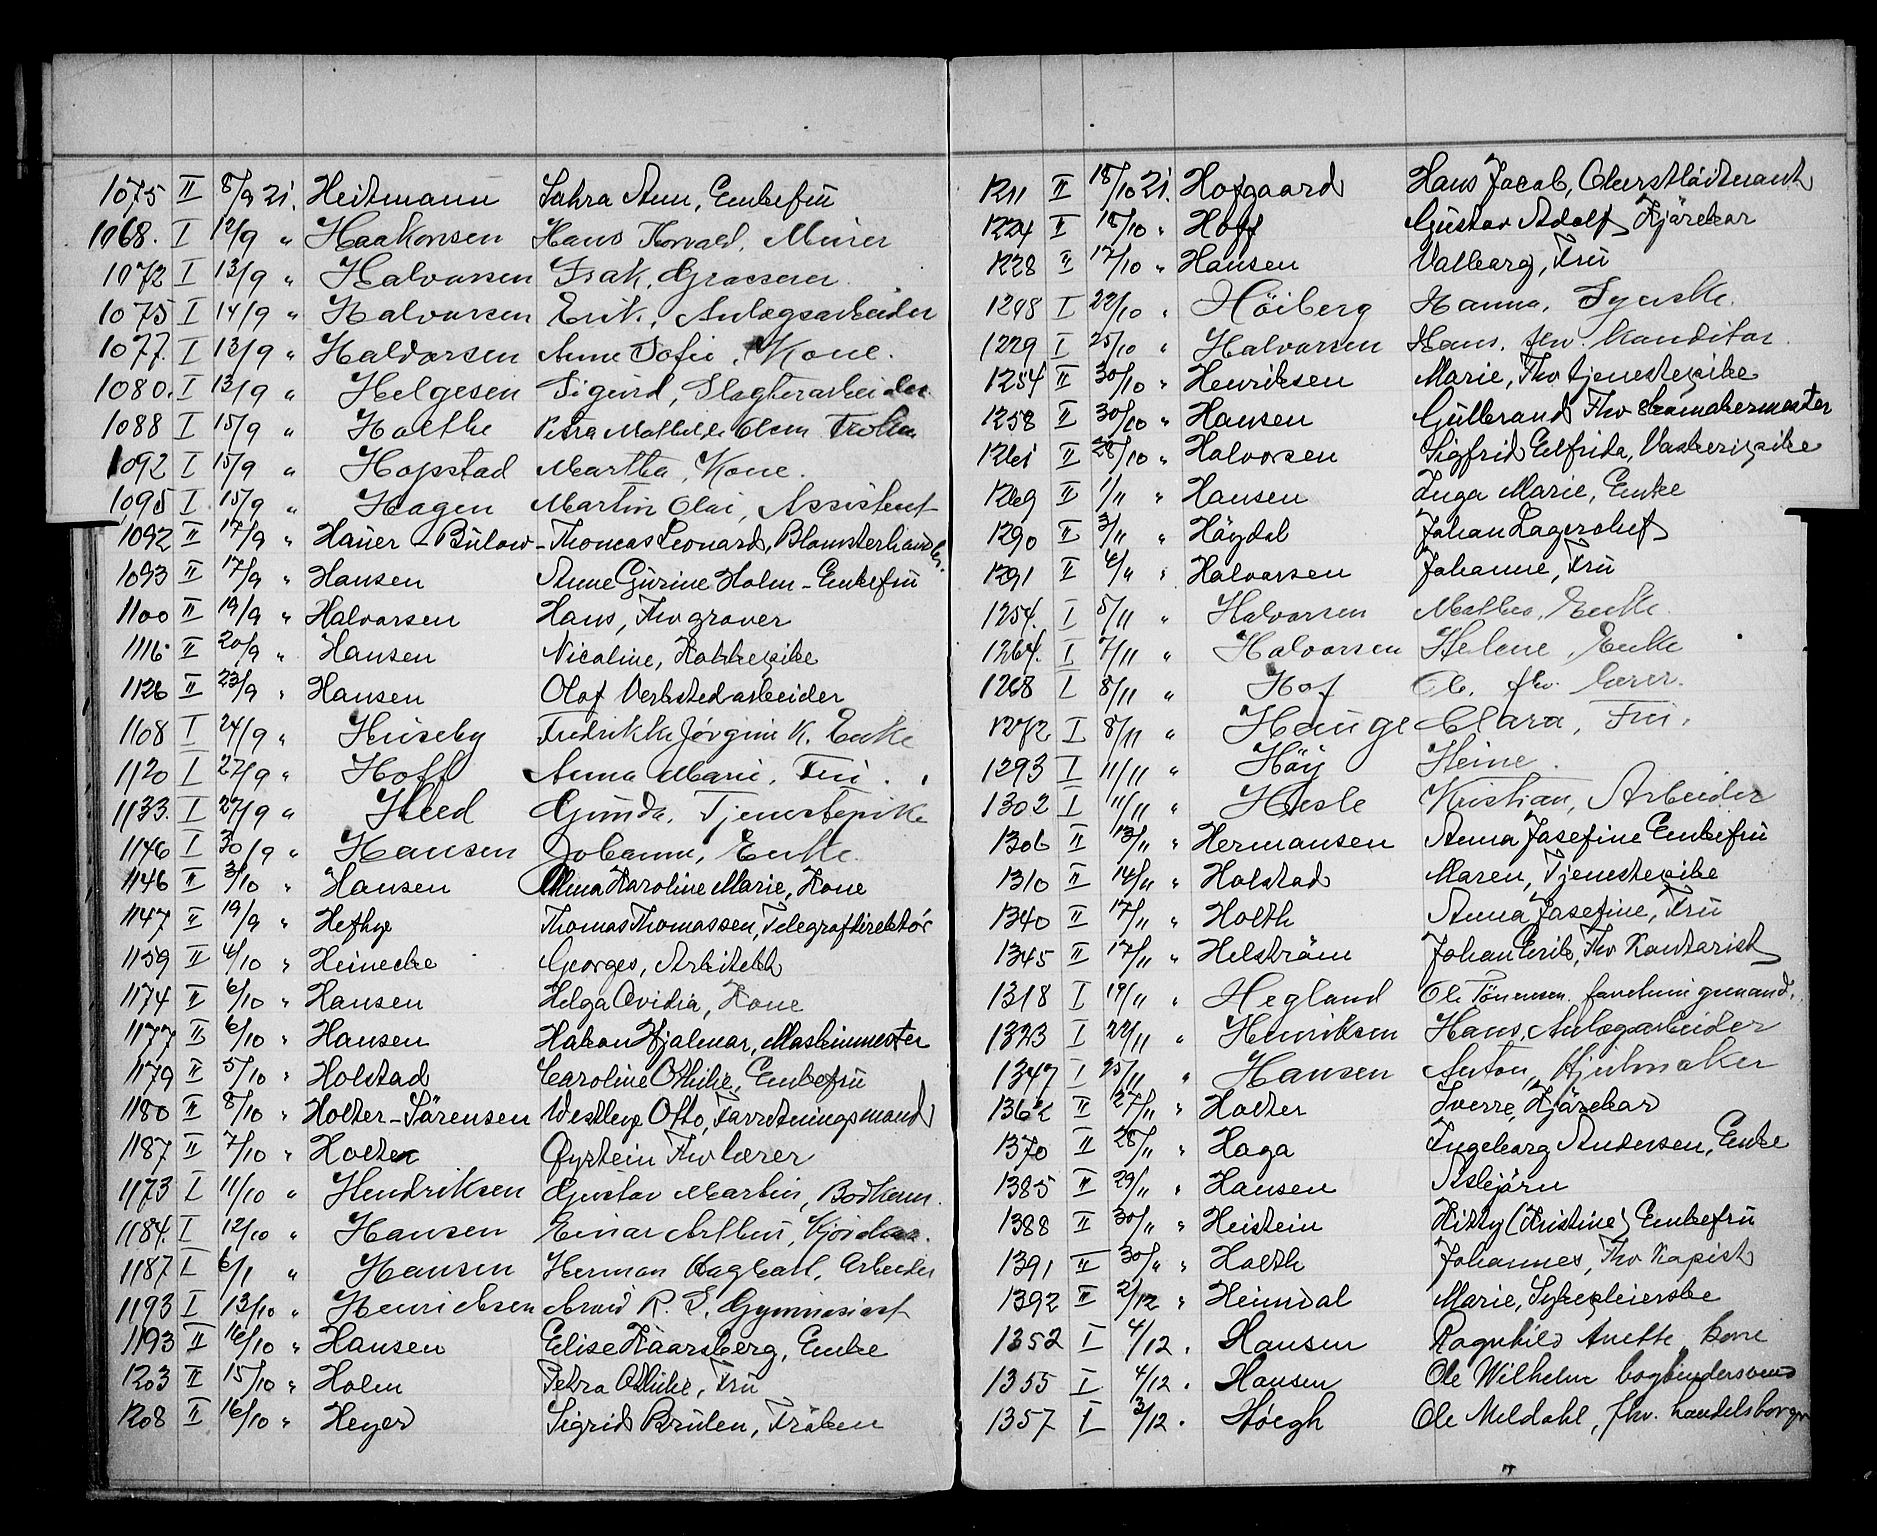 1075 II 8/9 21. Heitmann Sahra Ann, Enkefrü
1068. I 12/9 " Haakonsen Hans Thorvald, Murer
1072 I 13/9 " Halvorsen Isak, Grosserer.
1075 I 14/9 " Halvorsen Erik, Anlægsarbeider
1077. I 13/9 " Haldorsen Anne Sofie, Kone.
1080. I 13/9 " Helgesen Sigurd, Slagterarbeider
1088 I 15/9 " Holthe Petra Mathilde Olsen Frøken
1092 I 15/9 " Hopstad Martha, Kone.
1095 I 15/9 " Hagen Martin Olai, Assistent
1092 II 17/9 " Haüer-Bülow Thomas Leonard, Blomsterhandler
1093 II 17/9 " Hansen Anne Gürine Holm - Enkefrü
1100 II 19/9 " Halvorsen Hans, Fhv graver
1116 II 20/9 " Hansen Nicoline, Kokkepike
1126 II 23/9 " Hansen Olaf Verkstedarbeider
1108 I 24/9 " Hüseby Fredrikke Jørgine K. Enke
1120 I 27/9 " Hoff Anna Marie, Frü.
1133. I 27/9 " Hed Günda, Tjenestepike
1146 I 30/9 " Hansen Johanne, Enke.
1146 II 3/10 " Hansen Alma Karoline Marie, Kone
1147 II 19/9 " Heftye Thomas Thomassen, Telegrafdirektör
1159 II 4/10 " Heinecke Georges, Arkitekt
1174 II 6/10 " Hansen Helga Ovidia, Kone
1177 II 6/10 " Hansen Hakon Hjalmar, Maskinmester
1179 II 5/10 " Holstad Caroline Othilie, Enkefrü
1180 II 8/10 " Holter-Sörensen Westlye Otto, Forretningsmand
1187 II 7/10 " Holter Øystein Fhv lærer
1173 I 11/10 " Hendriksen Gustav Martin,
1184. I 12/10 " Hansen Einar Arthur, Kjørekar.
1187 I 6/1 " Hansen Herman Hagbart, Arbeider
1193 I 13/10 " Henrichsen Arvid R. S. Gymnasiast
1193 II 16/10 " Hansen Elise Kaarsberg, Enke
1203 II 15/10 " Holm Petra Othilie, Frü
1208 II 16/10 " Heyer Sigrid Brülen, Fröken
1211 II 18/10 21. Hofgaard Hans Jacob, Oberstlöitnant
1224 II 18/10 " Hoff Güstav Adolf Kjörekar
1228 II 17/10 " Hansen Valborg, Frü
1248 I 22/10 " Höiberg Hanna, Syerske.
1229 I 25/10 " Halvorsen Hans, fhv. konditor
1254 II 30/10 " Henriksen Marie, Fhv tjenestepike
1258 II 30/10 " Hansen Gülbrand Fhv skomakermester
1261 II 28/10 " Halvorsen Sigfrid Elfrida, Vaskeripike
1269 II 1/11 " Hansen Inga Marie, Enke
1290 II 3/11 " Höydal Johan Lagerolief
1291 II 4/11 " Halvorsen Johanne, Frü
1254. I 5/11 " Halvorsen Mathea, Enke.
1264. I 7/11 " Halvorsen Helene, Enke
1268 I 8/11 " Hof Ole, fhv. lærer.
1272 I 8/11 " Hauge Clara, Frü.
1293 I 11/11 " Höy Heine.
1302 I 11/11 " Hesle Kristian, Arbeider
1306 II 13/11 " Hermansen Anna Josefine Enkefrü
1310 II 14/11 " Holstad Maren, Tjenestepike
1340 II 17/11 " Holth Anna Josefine, Frü
1345 II 17/11 " Helström Johan Erik, Fhv Kontorist
1318 I 19/11 " Hegland Ole Tönnesen
1323 I 22/11 " Henriksen Hans, Anlægsarbeider
1347 I 25/11 " Hansen Anton, Hjulmaker
1362 II 27/11 " Holter Sverre, Kjörekar
1370 II 28/11 " Haga Ingeborg Andersen, Enke
1385 II 29/11 " Hansen Asbjörn
1388 II 30/11 " Heistein Kitty (Kristine) Enkefrü
1391 II 30/11 " Holth Johannes, Fhv Kopist
1392 II 2/12 " Heimdal Marie, Sykepleierske
1352 I 4/12 . Hansen Ragnhild Anette kone
1355 I 4/12 . Hansen Ole Wilhelm bogbindersvend
1357 I 3/12 . Høegh Ole Meldahl, fhv. handelsborger